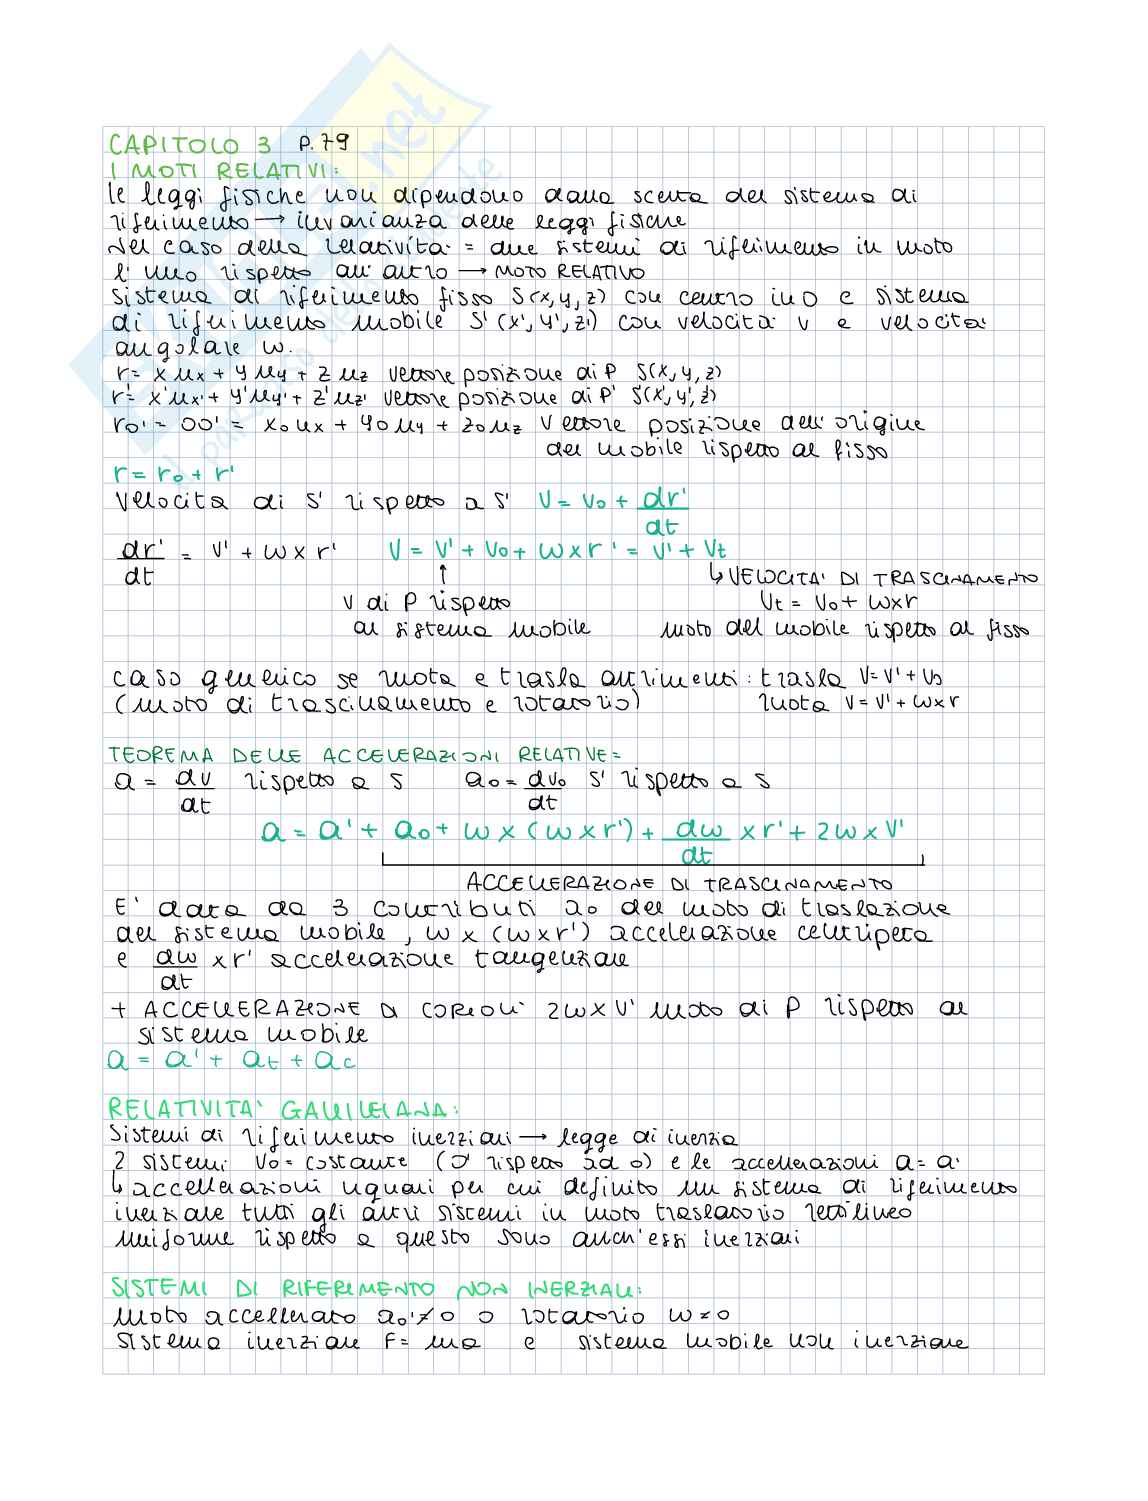 CAPITOLO 3 P.79
I MOTI RELATIVI:
le leggi fisiche non dipendono dalla scelta del sistema di
riferimento → invarianza delle leggi fisiche
Nel caso della relatività = due sistemi di riferimento in moto
l'uno rispetto all'altro → MOTO RELATIVO
sistema di riferimento fisso S(x,y,z) con centro in O e sistema
di riferimento mobile S'(x',y',z') con velocità v e velocità
angolare ω.
r = x ux + y uy + z uz vettore posizione di P S(x,y,z)
r' = x'ux' + y'uy' + z'uz' vettore posizione di P' S'(x',y',z')
ro' = OO' = xo ux + yo uy + zo uz vettore posizione dell'origine
del mobile rispetto al fisso
r = ro + r'
velocità di S' rispetto a S' v = vo + dr'/dt
dr'/dt = v' + ω x r' v = v' + vo + ω x r' = v' + vt
↳ VELOCITA' DI TRASCINAMENTO
v di P rispetto vt = vo + ωxr
al sistema mobile moto del mobile rispetto al fisso
caso generico se ruota e trasla altrimenti: trasla v = v' + vo
(moto di trascinamento e rotatorio) ruota v = v' + ωxr
TEOREMA DELLE ACCELERAZIONI RELATIVE=
a = dv/dt rispetto a S ao = dvo/dt S' rispetto a S
a = a' + ao + ω x (ω x r') + dω/dt x r' + 2ω x v'
ACCELLERAZIONE DI TRASCINAMENTO
E' data da 3 contributi ao del moto di traslazione
del sistema mobile, ω x (ω x r') accelerazione centripeta
e dω/dt x r' accelerazione tangenziale
+ ACCELLERAZIONE DI CORIOLI 2ω x v' moto di P rispetto al
sistema mobile
a = a' + at + ac
RELATIVITA' GALILEIANA:
Sistemi di riferimento inerziali → legge di inerzia
2 sistemi vo = costante (O' rispetto ad O) e le accellerazioni a = a'
↳ accellerazioni uguali per cui definito un sistema di riferimento
inerziale tutti gli altri sistemi in moto traslatorio rettilineo
uniforme rispetto a questo sono anch'essi inerziali
SISTEMI DI RIFERIMENTO NON INERZIALI:
moto accellerato ao' ≠ 0 o rotatorio ω ≠ 0
sistema inerziale F = ma e sistema mobile non inerziale